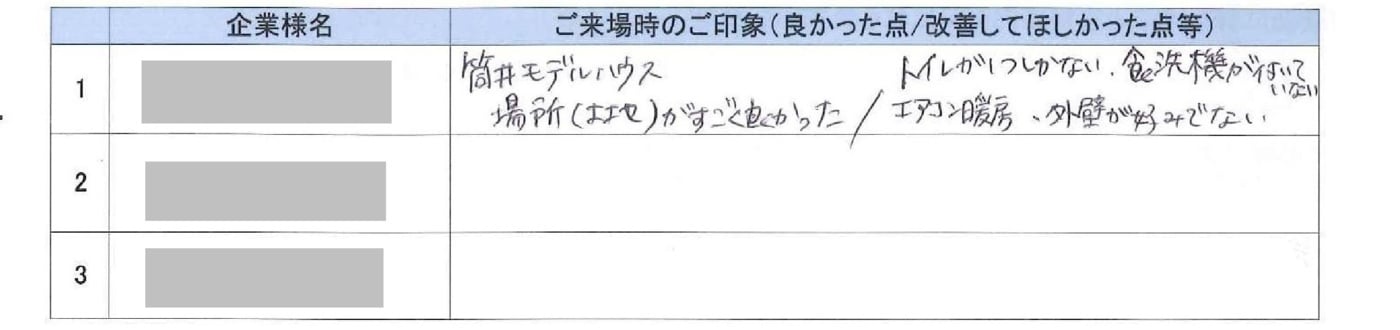 企業様名 ご来場時のご印象(良かった点/改善してほしかった点等)
1
筒井モデルハウス
場所(立地)がすごく良かった /
トイレが1つしかない、食洗機が付いていない
エアコン暖房、外壁が好みでない
2
3